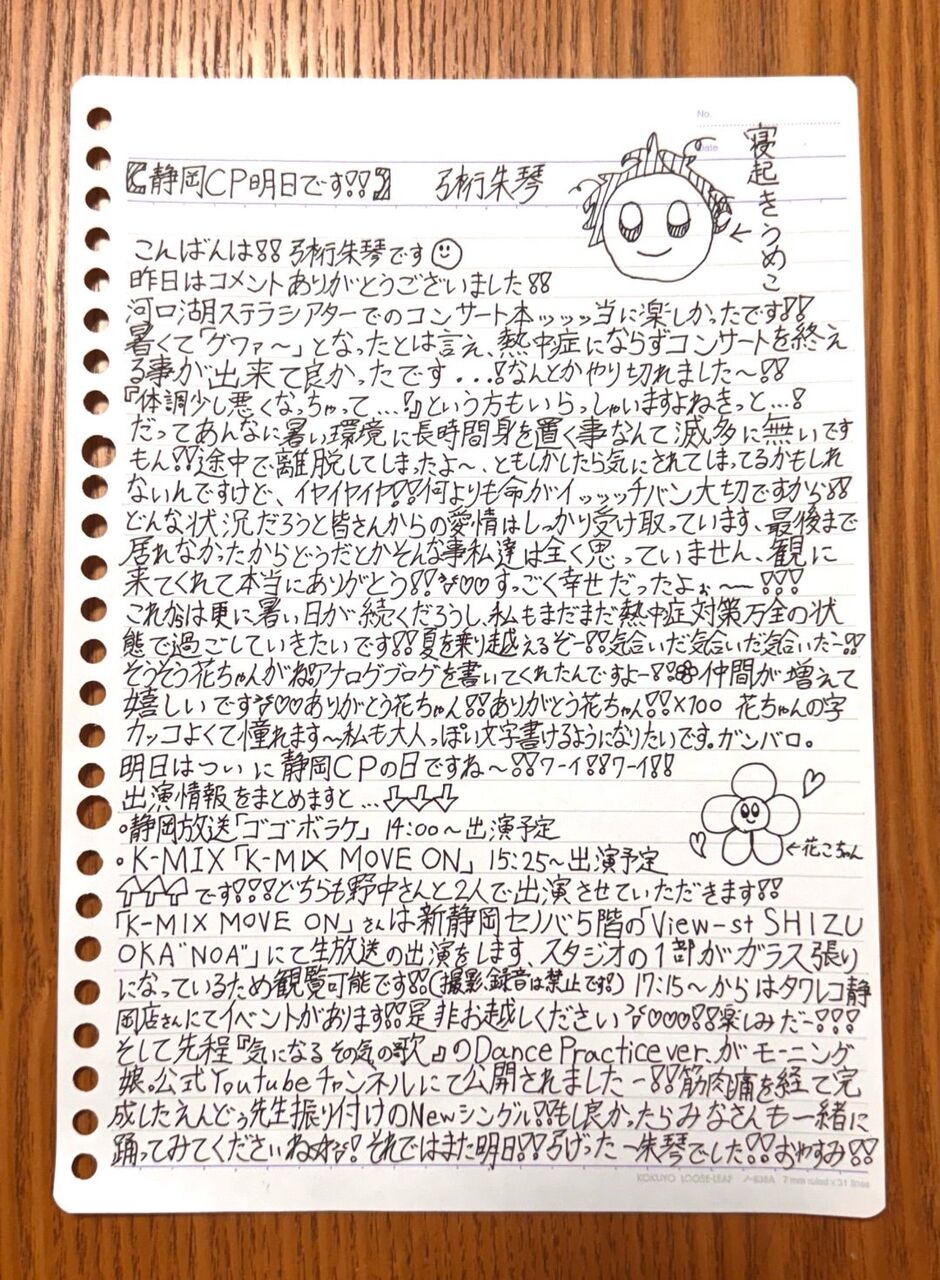 No.
Date
寝起きうめこ
【静岡CP明日です!!】 弓桁朱琴
こんばんは!!弓桁朱琴です
昨日はコメントありがとうございました!!
河口湖ステラシアターでのコンサート本ッッッ当に楽しかったです!!
暑くて「グワァ〜」となったとは言え、熱中症にならずコンサートを終え
る事が出来て良かったです...!なんとかやり切れました〜!!
『体調少し悪くなっちゃって...!』という方もいらっしゃいますよねきっと...!
だってあんなに暑い環境に長時間身を置く事なんて滅多に無いです
もん!!途中で離脱してしまったよ〜、ともしかしたら気にされてしまってるかもしれ
ないんですけど、イヤイヤイヤ!!何よりも命がイッッッチバン大切ですから!!
どんな状況だろうと皆さんからの愛情はしっかり受け取っています、最後まで
居れなかったからどうだとかそんな事私達は全く思っていません、観に
来てくれて本当にありがとう!!♡♡すっごく幸せだったよぉ〜ー!!!
これからは更に暑い日が続くだろうし、私もまだまだ熱中症対策万全の状
態で過ごしていきたいです!!夏を乗り越えるぞー!!気合いだ気合いだ気合いだー!!
そうそう花ちゃんがね!アナログブログを書いてくれたんですよー!!仲間が増えて
嬉しいです♡♡ありがとう花ちゃん!!ありがとう花ちゃん!!×100 花ちゃんの字
カッコよくて憧れます〜私も大人っぽい文字書けるようになりたいです。ガンバロ。
明日はついに静岡CPの日ですね〜!!ワーイ!!ワーイ!!
出演情報をまとめますと...⇩⇩⇩
•静岡放送「ゴゴボラケ」14:00〜出演予定
←花こちゃん
•K-MIX「K-MIX MOVE ON」15:25〜出演予定
⇧⇧⇧です!!!どちらも野中さんと2人で出演させていただきます!!
「K-MIX MOVE ON」さんは新静岡セノバ5階の「View-st SHIZU
OKA"NOA"」にて生放送の出演をします、スタジオの1部がガラス張り
になっているため観覧可能です!!(撮影、録音は禁止です!) 17:15〜からはタワレコ静
岡店さんにてイベントがあります!!是非お越しください♡♡♡!!楽しみだー!!!
そして先程『気になるその気の歌』のDance Practice ver.がモーニング
娘。公式Youtubeチャンネルにて公開されましたー!!筋肉痛を経て完
成したえんどぅ先生振り付けのNewシングル!!もし良かったらみなさんも一緒に
踊ってみてくださいねね!それではまた明日!!弓げったー朱琴でした!!おやすみ!!
KOKUYO LOOSE-LEAF ノ-836A 7 mm ruled x 31 lines